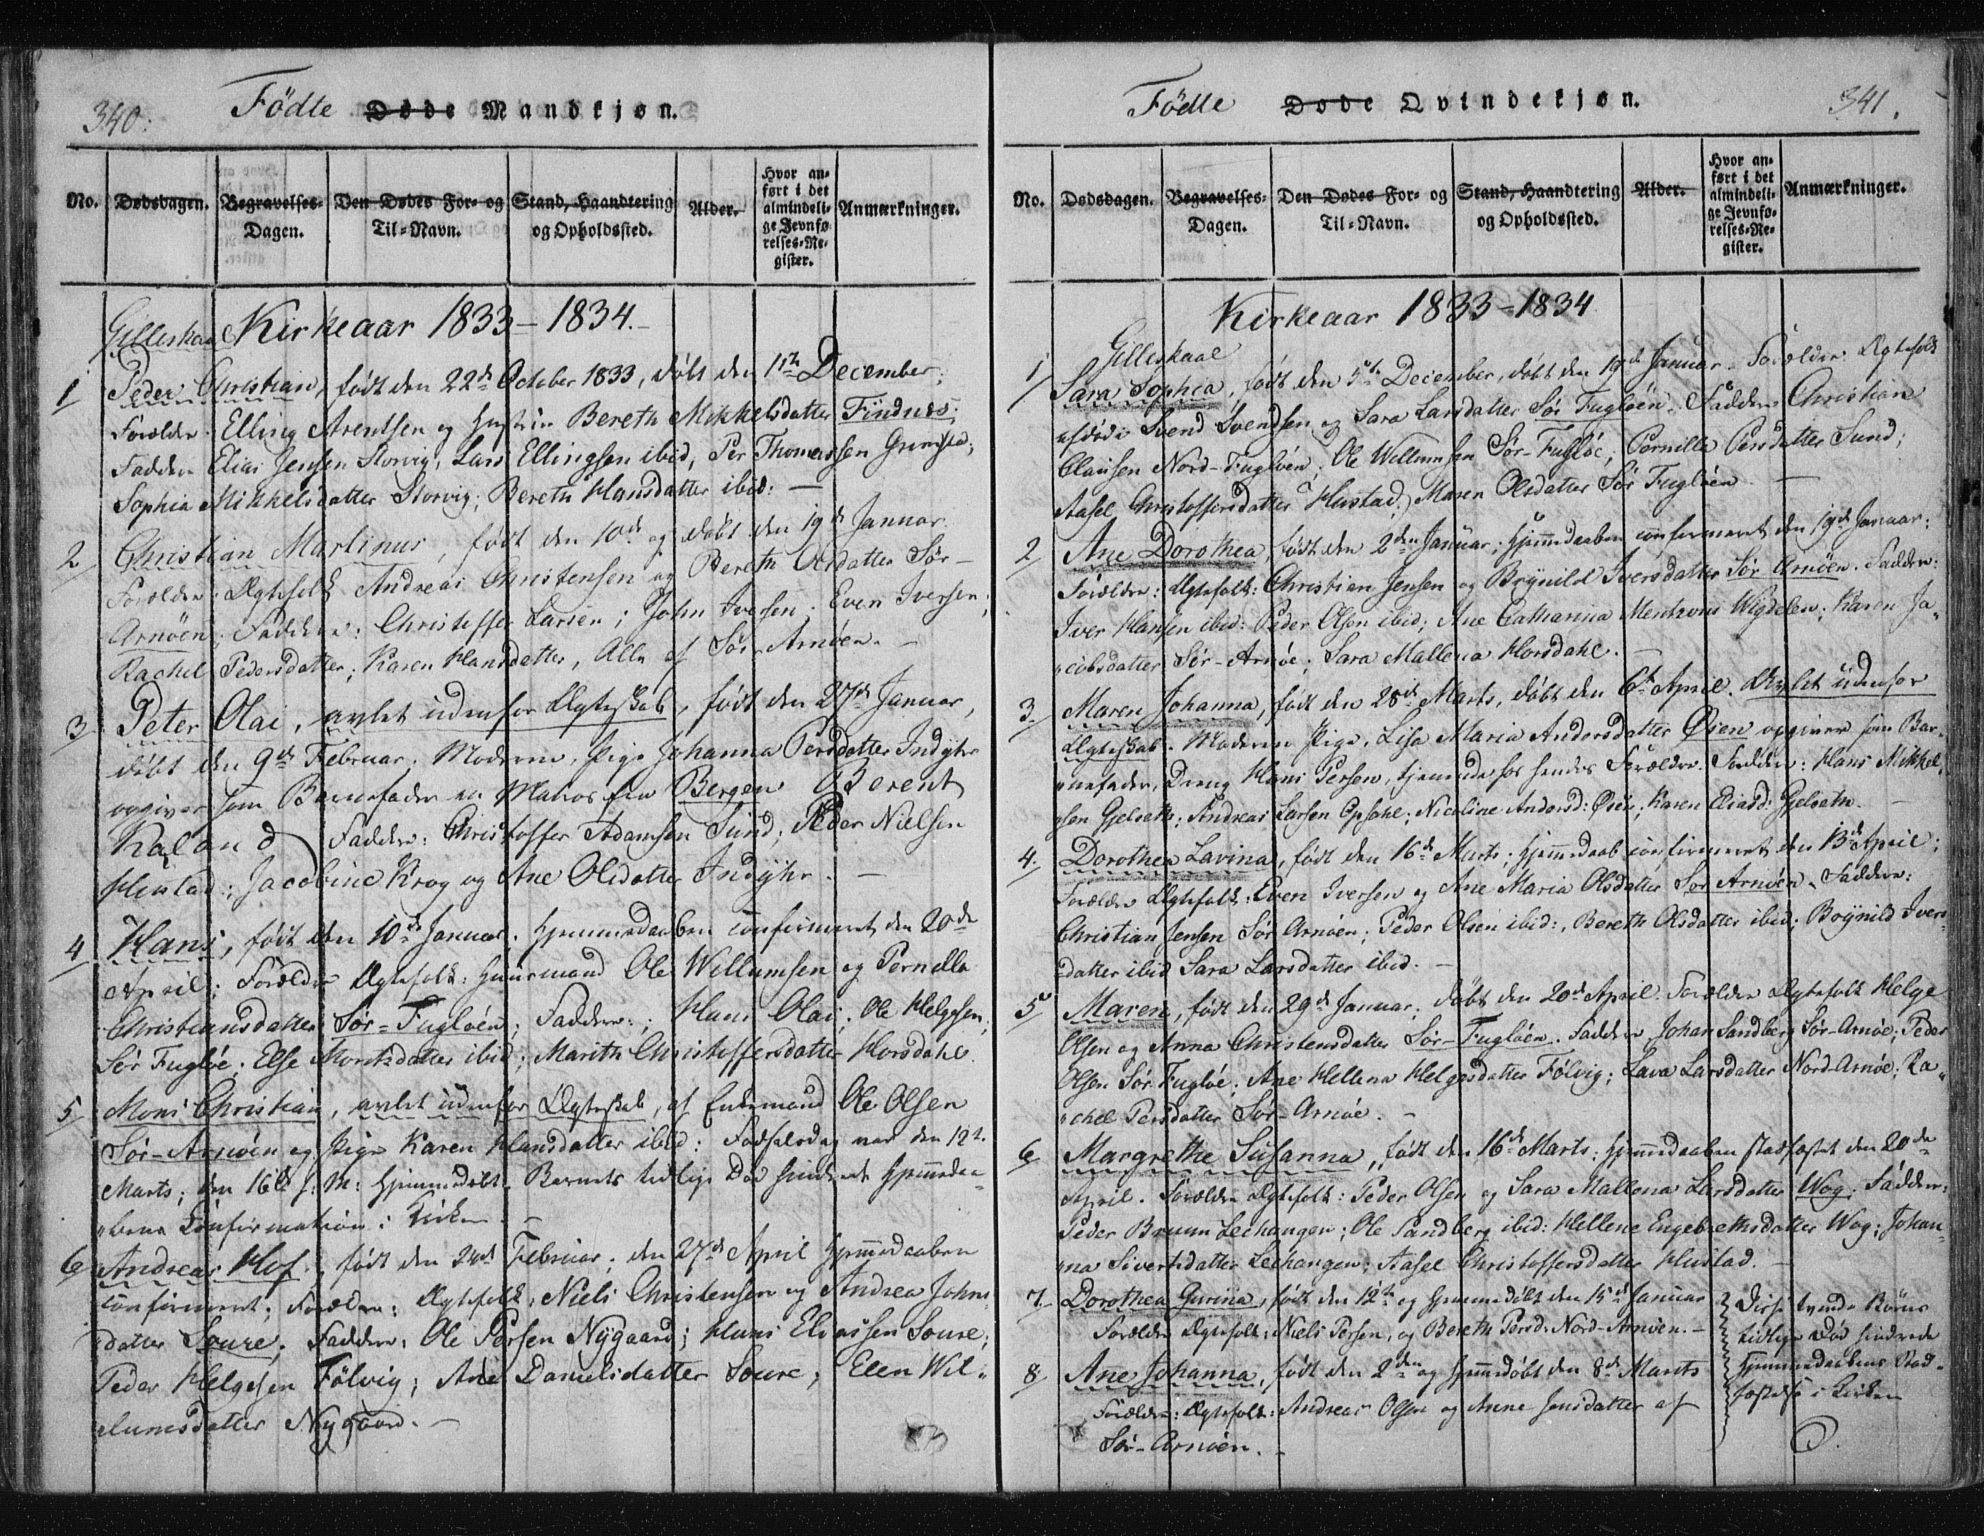 340.
Födte Døde Mandkjøn.
No. Dødsdagen. Begravelses-Dagen. Den Dødes For- og Til-Navn. Stand, Haandtering og Opholdssted. Alder. Hvor anført i det almindelige Jevnførelses-Register. Anmærkninger.
Gilleskaal Kirkeaar 1833–1834.–
1 Peder Christian, födt den 22de October 1833, döbt den 1ste December;
Forældre Elling Arentsen og Hustrue Bereth Mikkelsdatter Findnes;
Faddere Elias Jensen Storvig, Lars Ellingsen ibid, Per Thomessen
Sophia Mikkelsdatter Storvig; Bereth Hansdatter ibid: —
2 Christian Martinus, födt den 10de og döbt den 19de Januar.
Forældre: Ægtefolk Andreas Christensen og Bereth Olsdatter Sör-
Arnöen; Faddere: Christoffer Larsen; John Iversen; Even Iversen;
Rachel Pedersdatter; Karen Hansdatter, Alle af Sör Arnöen. –
3 Peter Olai, avlet udenfor Ægteskab, födt den 27de Januar,
döbt den 9de Februar; Moderen, Pige Johanna Persdatter Indÿhr
opgiver som Barnefader en Matros fra Bergen Berent
Kaland Faddere: Christoffer Adamsen Sund; Peder Nielsen
Hustad; Jacobine Krog og Ane Olsdatter Indÿhr. —
4 Hans, födt den 10de Januar. Hjemmedaaben confirmeret den 20de
April; Forældre Ægtefolk: Huusmand Ole Willumsen og Pernella
Christiansdatter Sör-Fuglöen; Faddere: Hans Olai; Ole Helgesen;
Sör Fuglöe; Else Mortsdatter ibid; Marith Christoffersdatter Horsdahl.
5 Mons Christian, avlet udenfor Ægteskab, af Enkemand Ole Olsen
Sör-Arnöen og Pige Karen Hansdatter ibid: Fødselsdag var den 12te
Marts; den 16de s: M: hjemmedöbt. Barnets tidlige Död hindrede Hjemmeda-
abens Confirmation i Kirken –
6 Andreas Hof, födt den 24de Februar; den 27de April Hjemmedaaben
confirmeret; Forældre: Ægtefolk, Niels Christensen og Andrea Johns-
datter Soure; Faddere: Ole Persen Nygaard; Hans Eliassen Soure;
Peder Helgesen Fölvig; Ane Danielsdatter Soure; Elen Wil-
lumsdatter Nygaard. –
341.
Födte Døde Qvindekjøn.
No. Dødsdagen. Begravelses-Dagen. Den Dødes For- og Til-Navn. Stand, Haandtering og Opholdssted. Alder. Hvor anført i det almindelige Jevnførelses-Register. Anmærkninger.
Kirkeaar 1833–1834
Gilleskaal
1 Sara Sophia, födt den 5te December, döbt den 19de Januar. Forældre Ægtefolk
afdöde Svend Svendsen og Sara Larsdatter Sör Fuglöen. Faddere Christian
Clausen Nord-Fuglöen; Ole Willumsen Sör-Fuglöe; Pernille Persdatter Sund;
Aasel Christoffersdatter Hustad; Maren Olsdatter Sör Fuglöen —
2 Ane Dorothea, födt den 2den Januar; Hjemmedaaben confirmeret den 19de Januar:
Forældre: Ægtefolk: Christian Jensen og Boÿnild Iversdatter Sör Arnöen. Faddere:
Iver Hansen ibid: Peder Olsen ibid; Ane Catharina Menkoni Wigdelen; Karen Ja-
cobsdatter Sör-Arnöe; Sara Mallena Horsdahl. –
3 Maren Johanna, födt den 28de Marts, döbt den 6te April. Avlet udenfor
Ægteskab. Moderen Pige, Lisa Maria Andersdatter Øsen opgiver som Bar-
nefader, Dreng Hans Persen, tjenende for hendes Forældre. Faddere: Hans Mikkel-
sen Gjelseth; Andreas Larsen Opsahl; Nicoline Andersd: Øsen; Karen Eliasd: Gjelseth. –
4. Dorothea Lavina, födt den 16de Marts; Hjemmedaab confirmeret den 13de April;
Forældre Ægtefolk: Even Iversen og Ane Maria Olsdatter Sör Arnöen. Faddere:
Christian Jensen Sör Arnöen; Peder Olsen ibid:, Bereth Olsdatter ibid; Boÿnild Ivers-
datter ibid Sara Larsdatter ibid. –
5 Maren, födt den 29de Januar; döbt den 20de April. Forældre Ægtefolk Helge
Olsen og Anna Christensdatter Sör-Fuglöen. Faddere, Johan Sandberg Sör-Arnöe; Peder
Olsen Sör Fuglöe; Ane Hellena Helgesdatter Fölvig; Lava Larsdatter Nord-Arnöe; Ra-
chel Persdatter Sör-Arnöe. –
6 Margrethe Susanna, födt den 16de Marts; Hjemmedaaben stadfæstet den 20de
April. Forældre Ægtefolk: Peder Olsen og Sara Mallena Larsdatter Wog; Faddere:
Peder Bruun Lechangen; Ole Sandberg ibid: Hellene Engebrethsdatter Wog; Johan-
na Sivertsdatter Lechangen; Aasel Christoffersdatter Hustad. –
7 Dorothea Gurina, födt den 12te og hjemmedöbt den 15de Januar
Forældre Ægtefolk: Niels Persen, og Bereth Persd: Nord-Arnöen. –
8 Ane Johanna, födt den 2den og hjemmedöbt den 8de Marts
Forældre: Ægtefolk: Andreas Olsen og Anne Jensdatter af
Sör-Arnöen. –
Disse tvende Börns
tidlige Död hindrede
Hjemmedaabens Stad-
fæstelse i Kirken